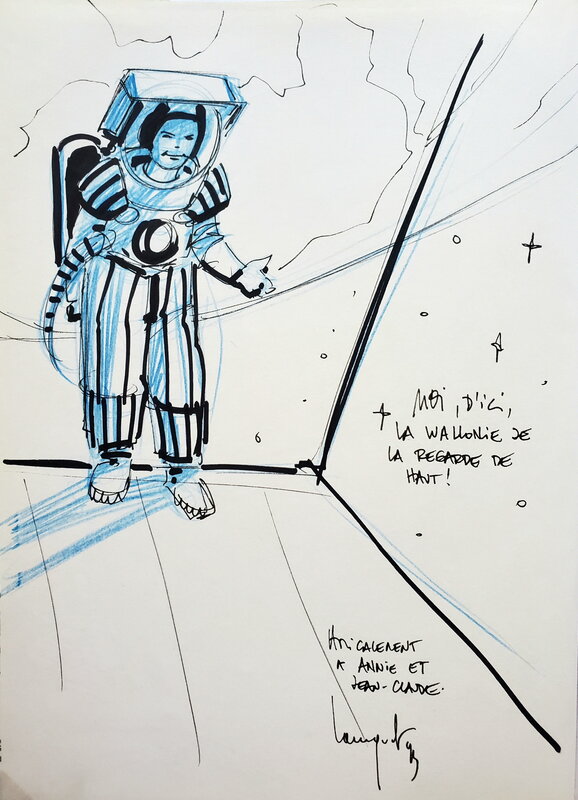 MOI, D'ICI,
LA WALLONIE JE
LA REGARDE DE
HAUT!
AMICALEMENT
A ANNIE ET
JEAN-CLAUDE.